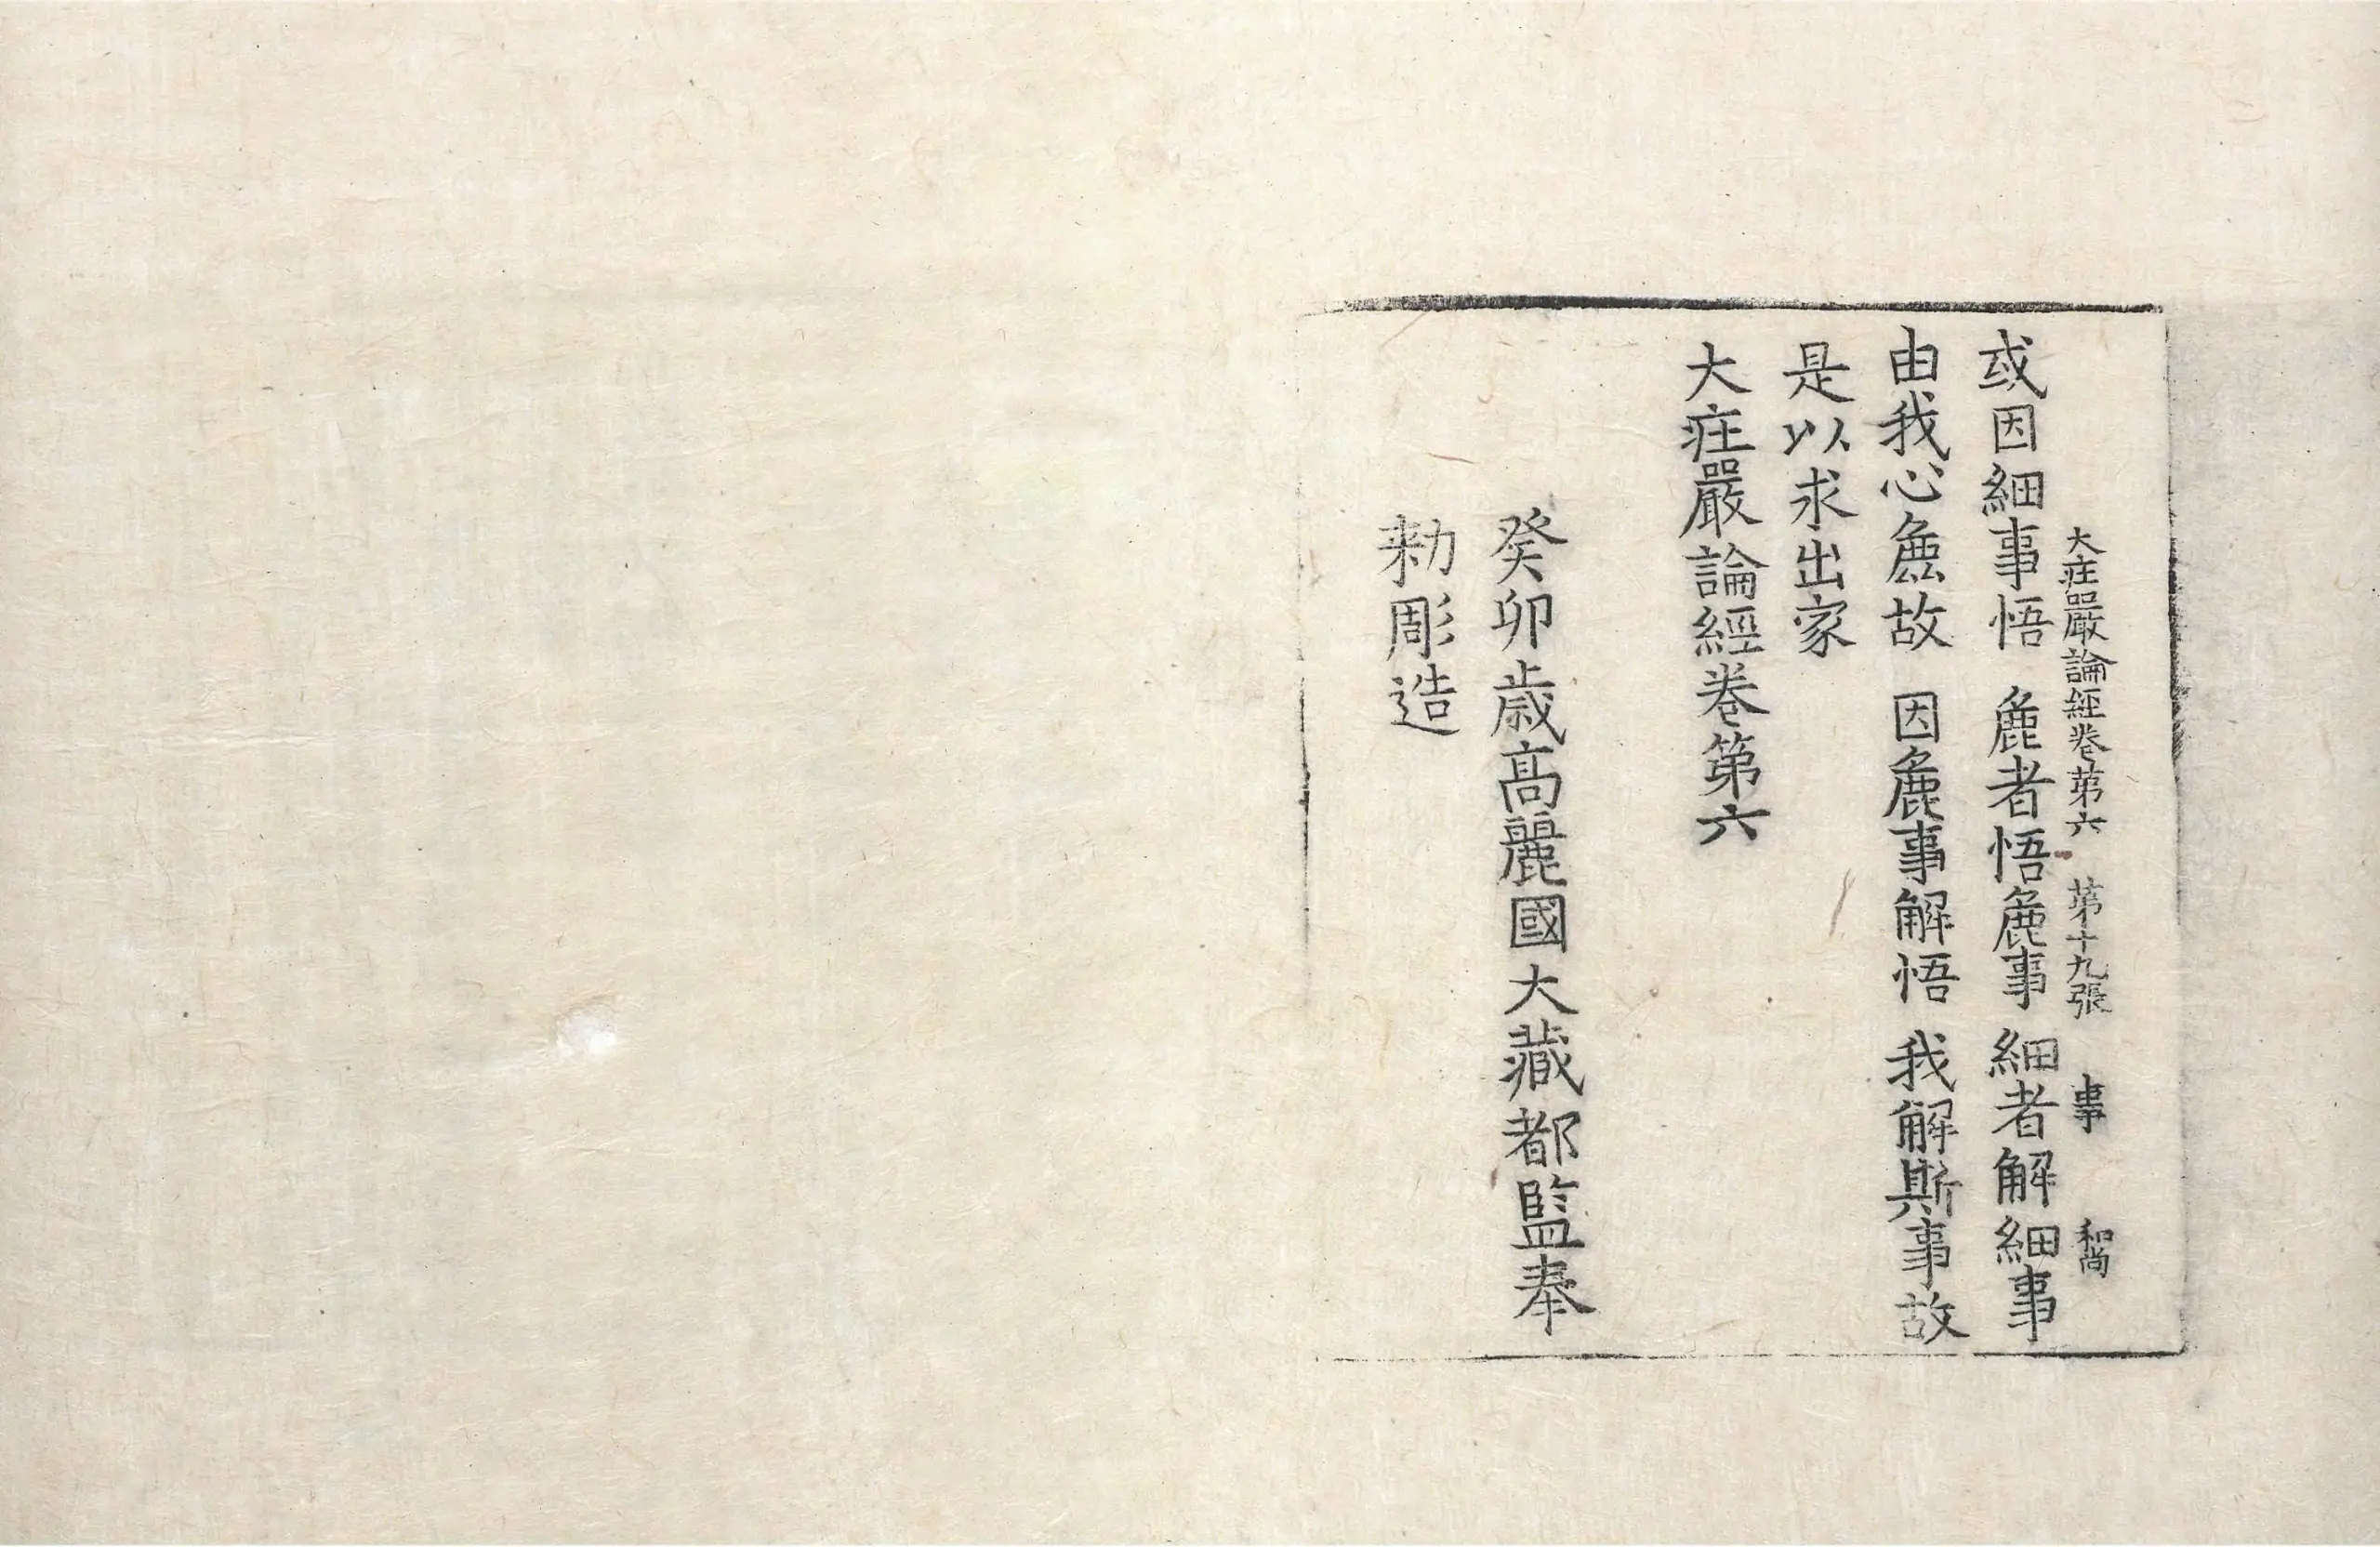 大㽵嚴論經卷第六 第十九張 事 和尚
或因細事悟 麁者悟麁事 細者解細事
由我心麁故 因麁事解悟 我解斯事故
是以求出家
大㽵嚴論經卷第六
癸卯歳高麗國大藏都監奉
勑彫造